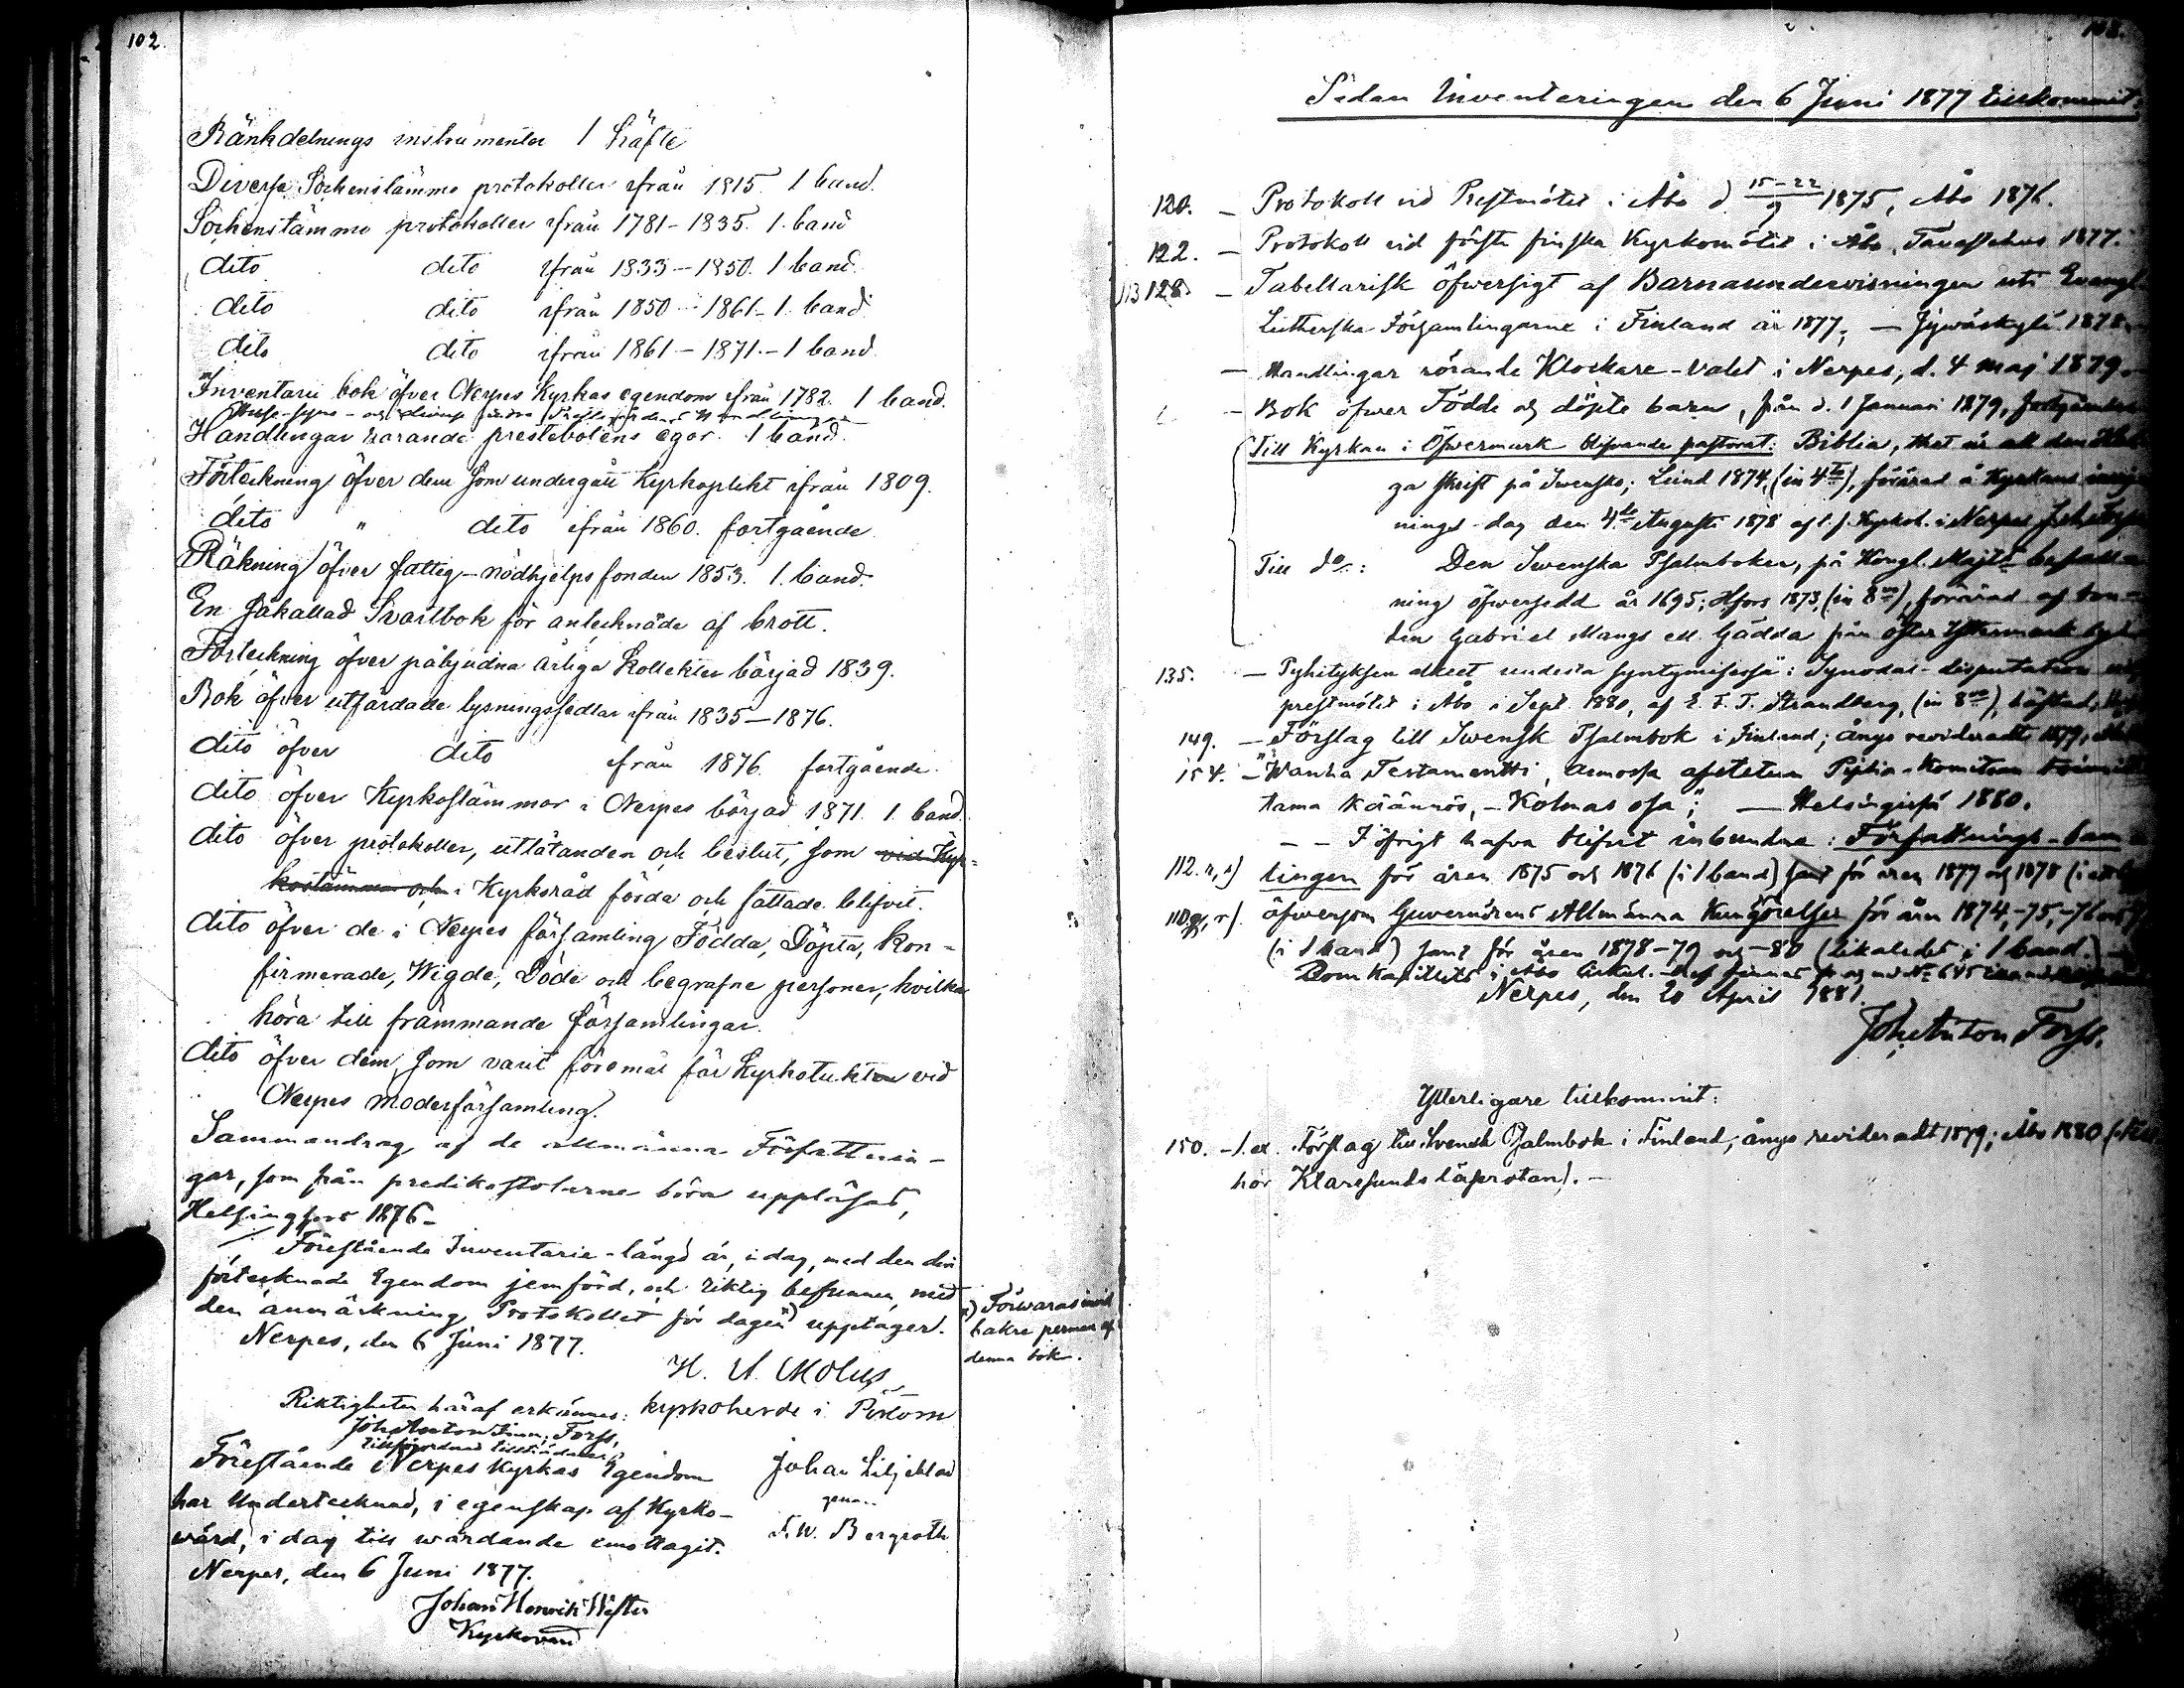 102.
Bänkdelnings instrumenter 1 häfte
Diverse Sockenstämmo protokoller ifrån 1815. 1 band.
Sockenstämmo protokoller ifrån 1781-1835. 1. band
dito dito ifrån 1833-1850. 1 band.
dito dito ifrån 1850-1861- 1. band
dito dito ifrån 1861-1871.- 1 band
Inventarii bok öfver Nerpes Kyrkas egendom ifrån 1782. 1 band.
Huse-syns- och diverse andra
Handlingar rörande prestebolens egor. 1 band.
Förteckning öfver dem som undergått kyrkoplikt ifrån 1809.
dito " dito ifrån 1860. fortgående
Räkning öfver fattig-nödhjelps fonden 1853. 1. band.
En såkallad Svartbok för antecknade af brott.
Förteckning öfver påbjudna årliga Kollekter börjad 1839.
Bok öfver utfärdade lysningssedlar ifrån 1835-1876.
dito öfver dito ifrån 1876 fortgående.
dito öfver Kyrkostämmor i Nerpes börjad 1871. 1. band.
dito öfver protokoller, utlåtanden och beslut, som vid Kyr=
kostämmor och i Kyrkoråd förda och fattade blifvit.
dito öfver de i Nerpes församling Födda, Döpta, kon=
firmerade, Wigde, Döde och begrafne personer, hvilka
höra till främmande församlingar.
dito öfver dem, som varit föremål för Kyrkotukten vid
Nerpes moderförsamling.
Sammandrag af de allmänna Författnin-
gar, som från predikostolarne böra uppläsas,
Helsingfors 1876-
Förestående Inventarie-längd är, i dag, med den deri
förtecknade Egendom jemförd, och riktig befunnen, med
den anmärkning Protokollet för dagen x) upptager.
Nerpes, den 6 Juni 1877.
x) Förwaras invid
bakre permen af
denna bok.
H. A. Molus
kyrkoherde i Pörtom
Riktigheten häraf erkännes:
Joh. Anton Forss,
Förestående Nerpes Kyrkas Egendom
har Undertecknad, i egenskap af Kyrko-
wärd, i dag till wårdande emottagit.
Nerpes, den 6 Juni 1877.
Johan Liljeblad
genom
F. W. Bergroth
Johan Henrik Wester
Kyrkovärd
103.
Sedan Inventeringen den 6 Juni 1877 tillkommit:
120. - Protokoll vid Prestmötet i Åbo d. 15-22/9 1875, Åbo 1876.
122. - Protokoll vid första finska Kyrkomötet i Åbo, Tavastehus 1877.
128. - Tabellarisk öfwersigt af Barnaundervisningen uti Evangl.
Lutherska Församlingarne i Finland år 1877, - Jywäskylä 1878.
- Handlingar rörande Klockare-valet i Nerpes, d. 4 maj 1879.
- Bok öfwer Födde och döpte barn, från d. 1 Januari 1879, fortgående
Till Kyrkan i Öfwermark blifvande pastorat: Biblia, thet är all den Hel-
ga Skrift på Swensko; Lund 1874, (in 4to), förärad å Kyrkans invig-
nings-dag den 4de Augusti 1878 af
Till do: Den Swenska Psalmboken, på Kongl. Majts befall-
ning öfwersedd år 1695; Hfors 1873, (in 8vo), förärad af bon-
den Gabriel Mangs ell. Gädda från öfter Yttermark
135. - Pyhityksen alkeet uudesta syntymisessä: Synodal-disputation wid
prestmötet i Åbo i Sept. 1880, af E. F. T. Strandberg, (in 8vo), häftad,
149. - Förslag till Swensk Psalmbok i Finland; ånyo revideradt 1879,
154. - "Wanha Testamentti, Armossa asetetun Piplia-Komitean toimit-
tama käännös, - Kolmas osa"; - Helsingissä 1880.
- - I öfrigt hafva blifvit inbundna: Författnings-Sam-
112. r, s) lingen för åren 1875 och 1876 (i 1 band) samt för åren 1877 och 1878
110 q, r). äfwensom Guvernörens Allmänna Kungörelser för åren 1874,-75,-76
(i 1 band) samt för åren 1878-79 och -80 (likaledes i 1 band.)
Domkapitlets i Åbo Cirkul.
Nerpes, den 20 April 1881.
Joh. Anton Forss.
Ytterligare tillkommit:
150. - 1. ex. Förslag till Svensk Psalmbok i Finland, ånyo revideradt 1879; Åbo 1880
hör Klaresunds läsrotan). -